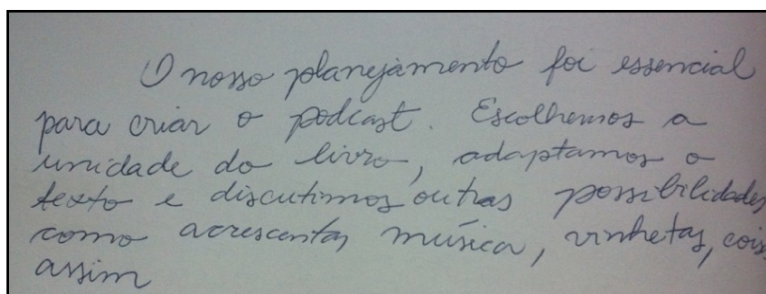 O nosso planejamento foi essencial
para criar o podcast. Escolhemos a
unidade do livro, adaptamos o
texto e discutimos outras possibilidades
como acrescentar música, vinhetas, cois
assim